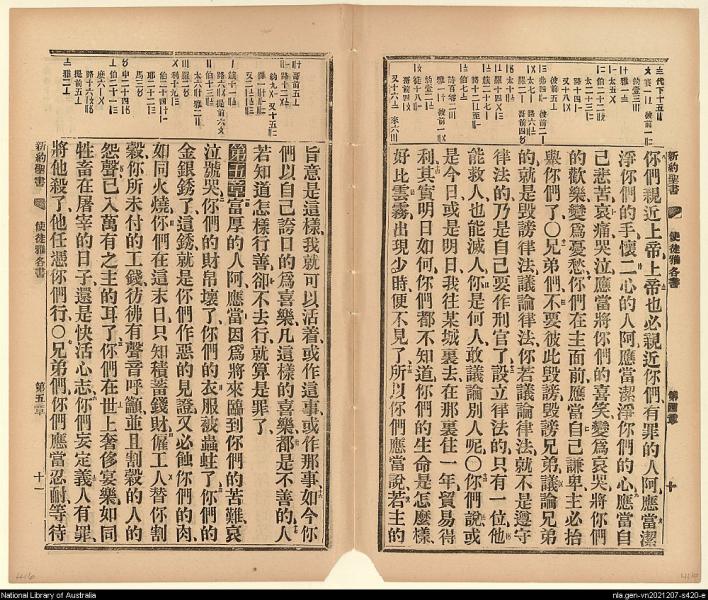 新約聖書 使徒雅各書 第四章 十
你們親近上帝上帝也必親近你們有罪的人阿應當潔
淨你們的手懷二心的人阿應當潔淨你們的心應當自
己悲苦哀痛哭泣應當將你們的喜笑變爲哀哭將你們
的歡樂變爲憂愁你們在主面前應當自己謙卑主必抬
舉你們了〇兄弟們不要彼此毀謗毀謗兄弟議論兄弟
的就是毀謗律法議論律法你若議論律法就不是遵守
律法的乃是自己要作刑官了設立律法的只有一位他
能救人也能滅人你是何人敢議論別人呢〇你們說或
是今日或是明日我往某城裏去在那裏住一年貿易得
利其實明日如何你們都不知道你們的生命是怎麼樣
好比雲霧出現少時便不見了所以你們應當說若主的
旨意是這樣我就可以活着或作這事或作那事如今你
們以自己誇口的爲喜樂凡這樣的喜樂都是不善的人
若知道怎樣行善卻不去行就算是罪了
第五章富厚的人阿應當因爲將來臨到你們的苦難哀
泣號哭你們的財帛壞了你們的衣服被蟲蛀了你們的
金銀銹了這銹就是你們作惡的見證又必蝕你們的肉
如同火燒你們在這末日只知積蓄錢財僱工人替你割
穀你所未付的工錢彷彿有聲音呼籲並且割穀的人的
怨聲已入萬有之主的耳了你們在世上奢侈宴樂如同
牲畜在屠宰的日子還是快活心志你們妄定義人有罪
將他殺了他任憑你們行〇兄弟們你們應當忍耐等待
新約聖書 使徒雅各書 第五章 十一
National Library of Australia
nla.gen-vn2021207-s420-e